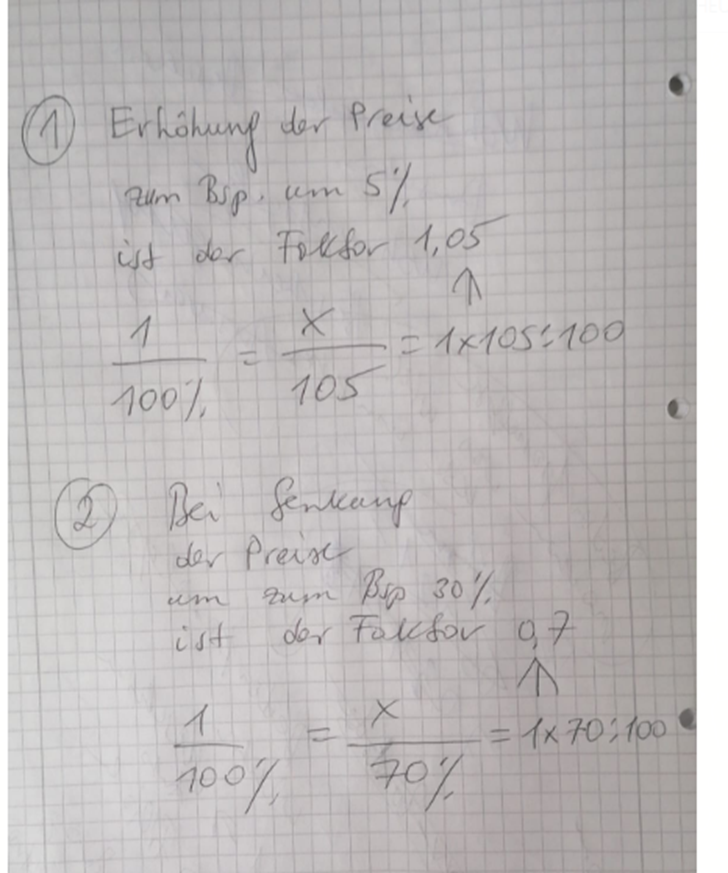 ① Erhöhung der Preise
zum Bsp. um 5%
ist der Faktor 1,05
↑
1/100% = x/105 = 1x105:100
② Bei Senkung
der Preise
um zum Bsp 30%
ist der Faktor 0,7
↑
1/100% = x/70% = 1x70:100